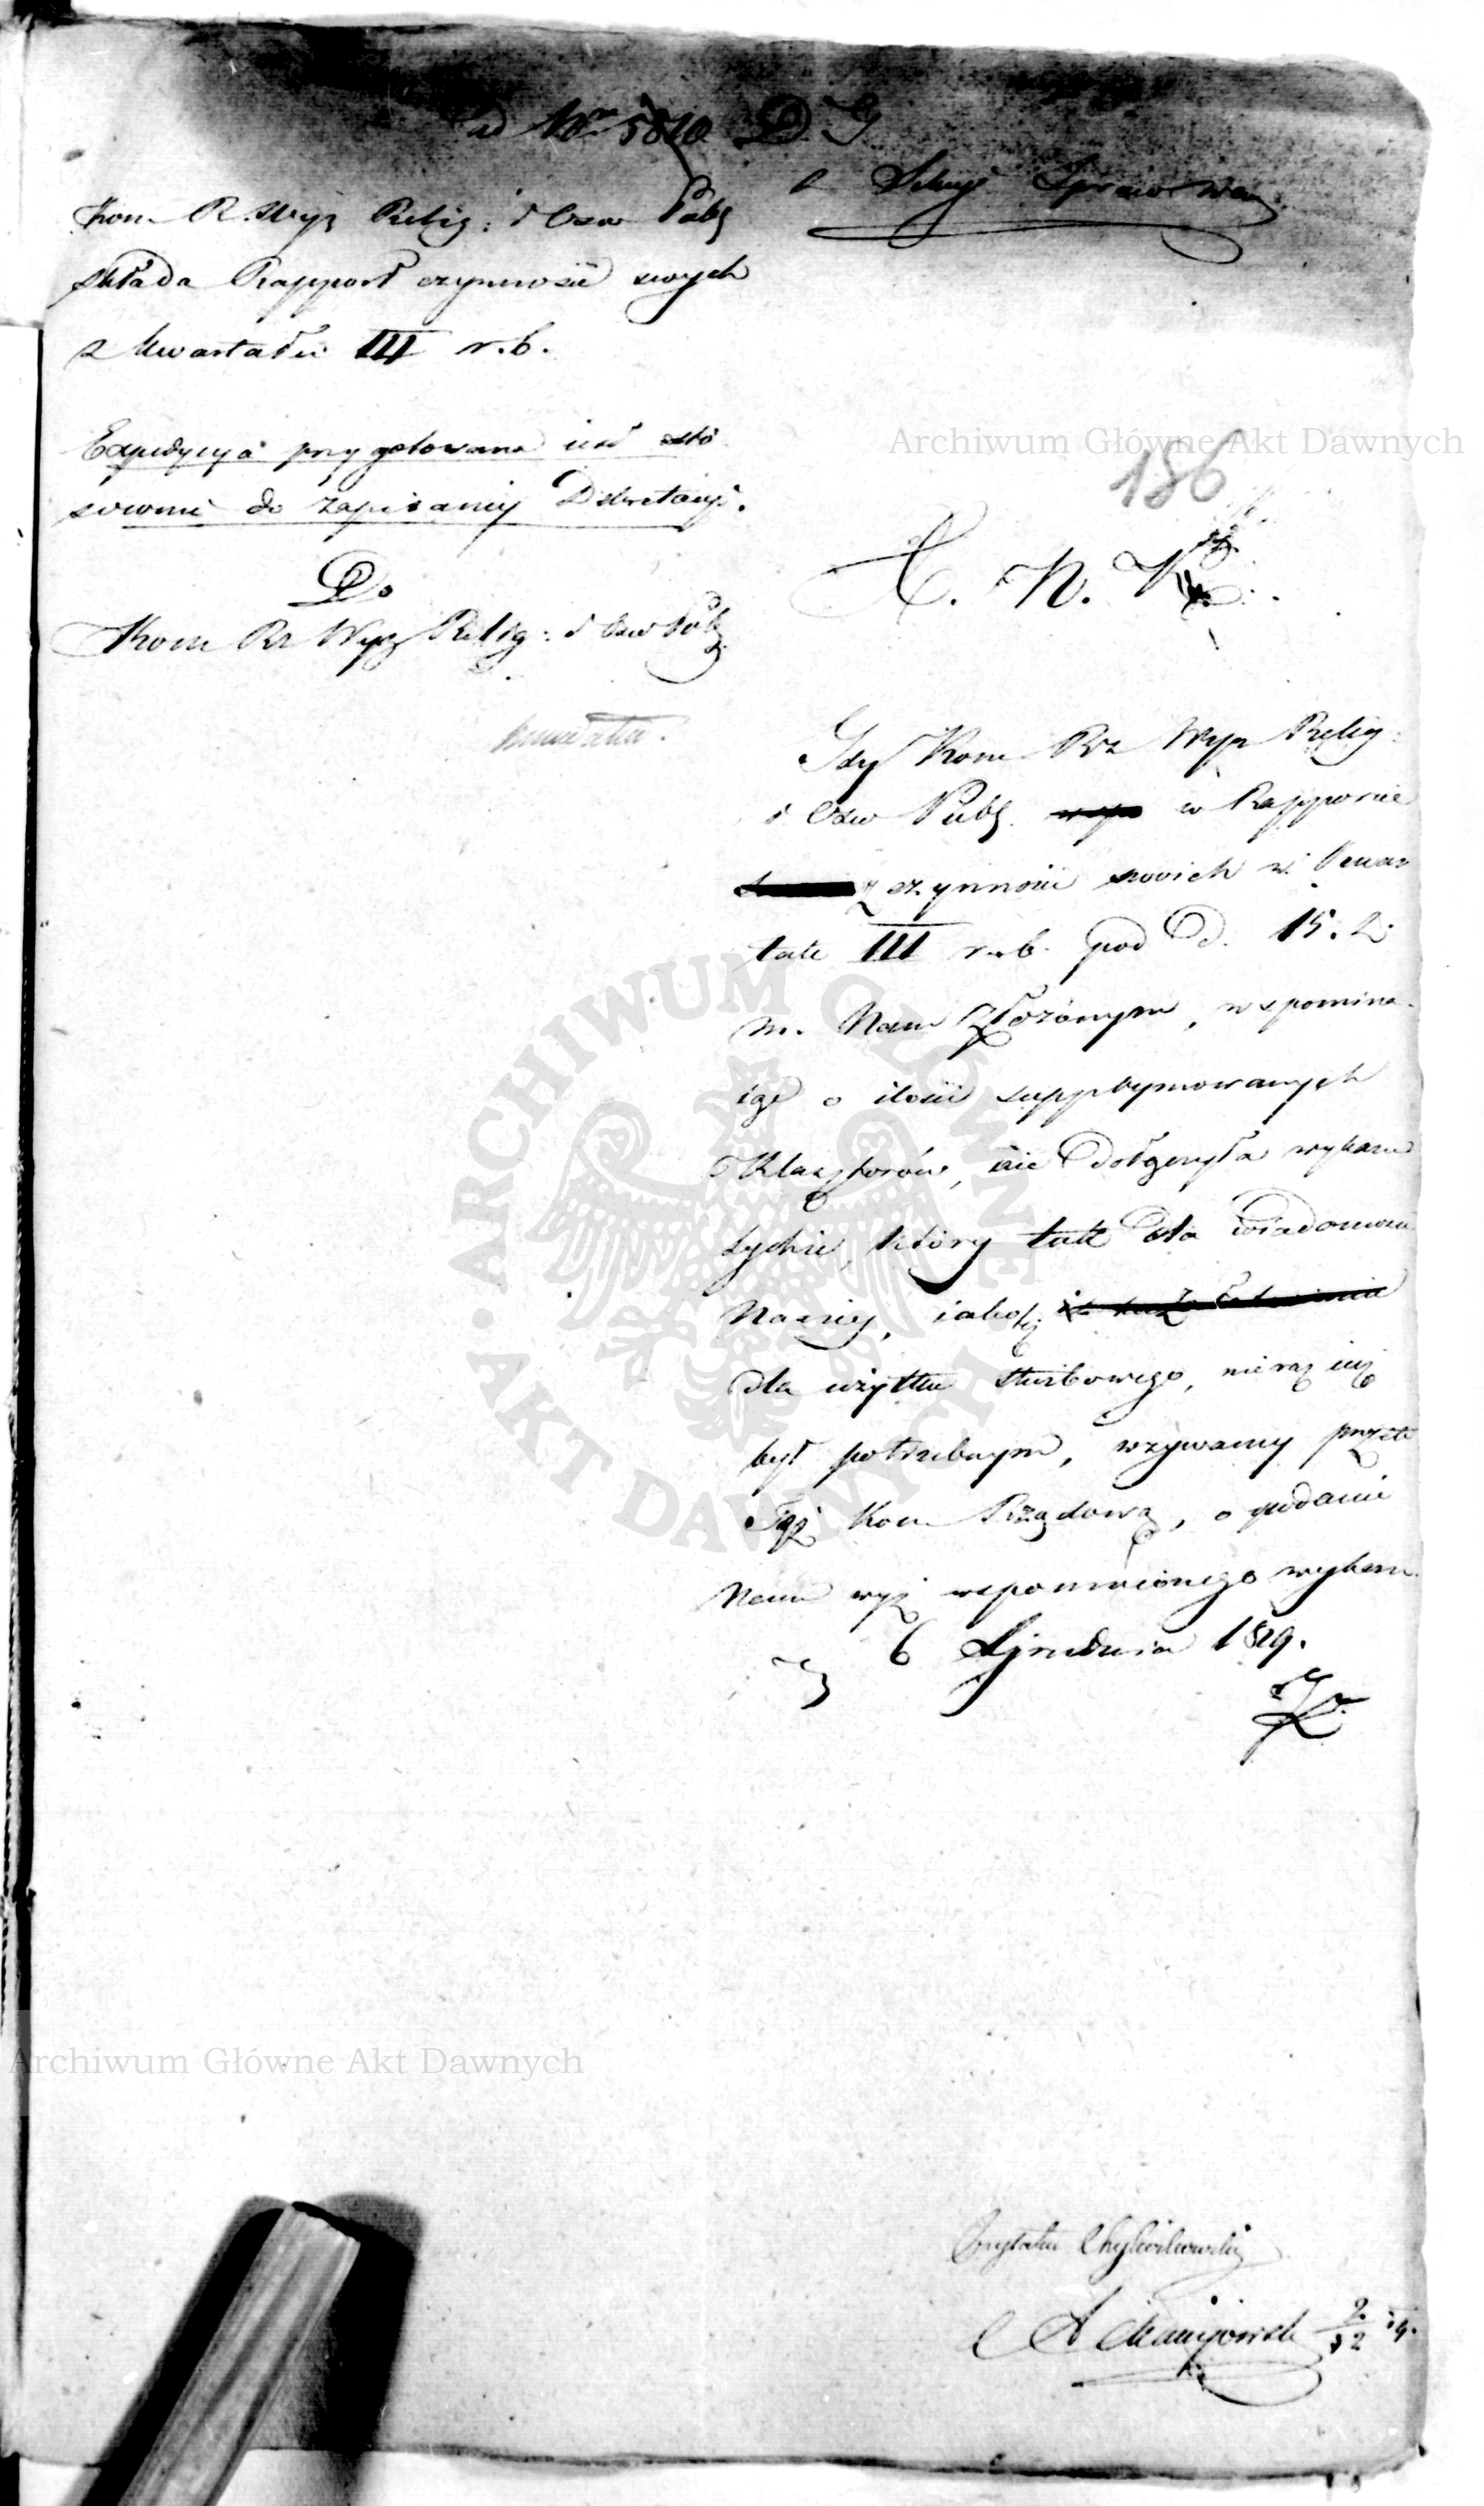 ad Nro 5810 D. G
Kom R. Wyz Relig: i Osw Publ
składa Rapport czynności swych
z kwartału III r. b.
Expedycya przygotowana iest sto
sownie do zapisaney Dekretacyi.
Do
Kom Rz Wyz Relig: i Osw Pub
Archiwum Główne Akt Dawnych
186
X. N. K.
Gdy Kom Rz Wyz Relig:
i Osw Publ. w Rapporcie
z czynności swoich w kwar
tale III r. b. pod d. 15. z.
m. Nam złożonym, wspomina
iąc o ilości supprymowanych
Klasztorów, nie dołączyła wykazu
tychże, który tak dla wiadomości
Naszey, iakoteż
dla użytku służbowego, nieraz iuż
był potrzebnym, wzywamy przeto
Tęż Kom Rządową, o podanie
Nam wyż wspomnionego wykazu.
6 Grudnia 1819.
ARCHIWUM GŁÓWNE
AKT DAWNYCH
Archiwum Główne Akt Dawnych
2/12 19.